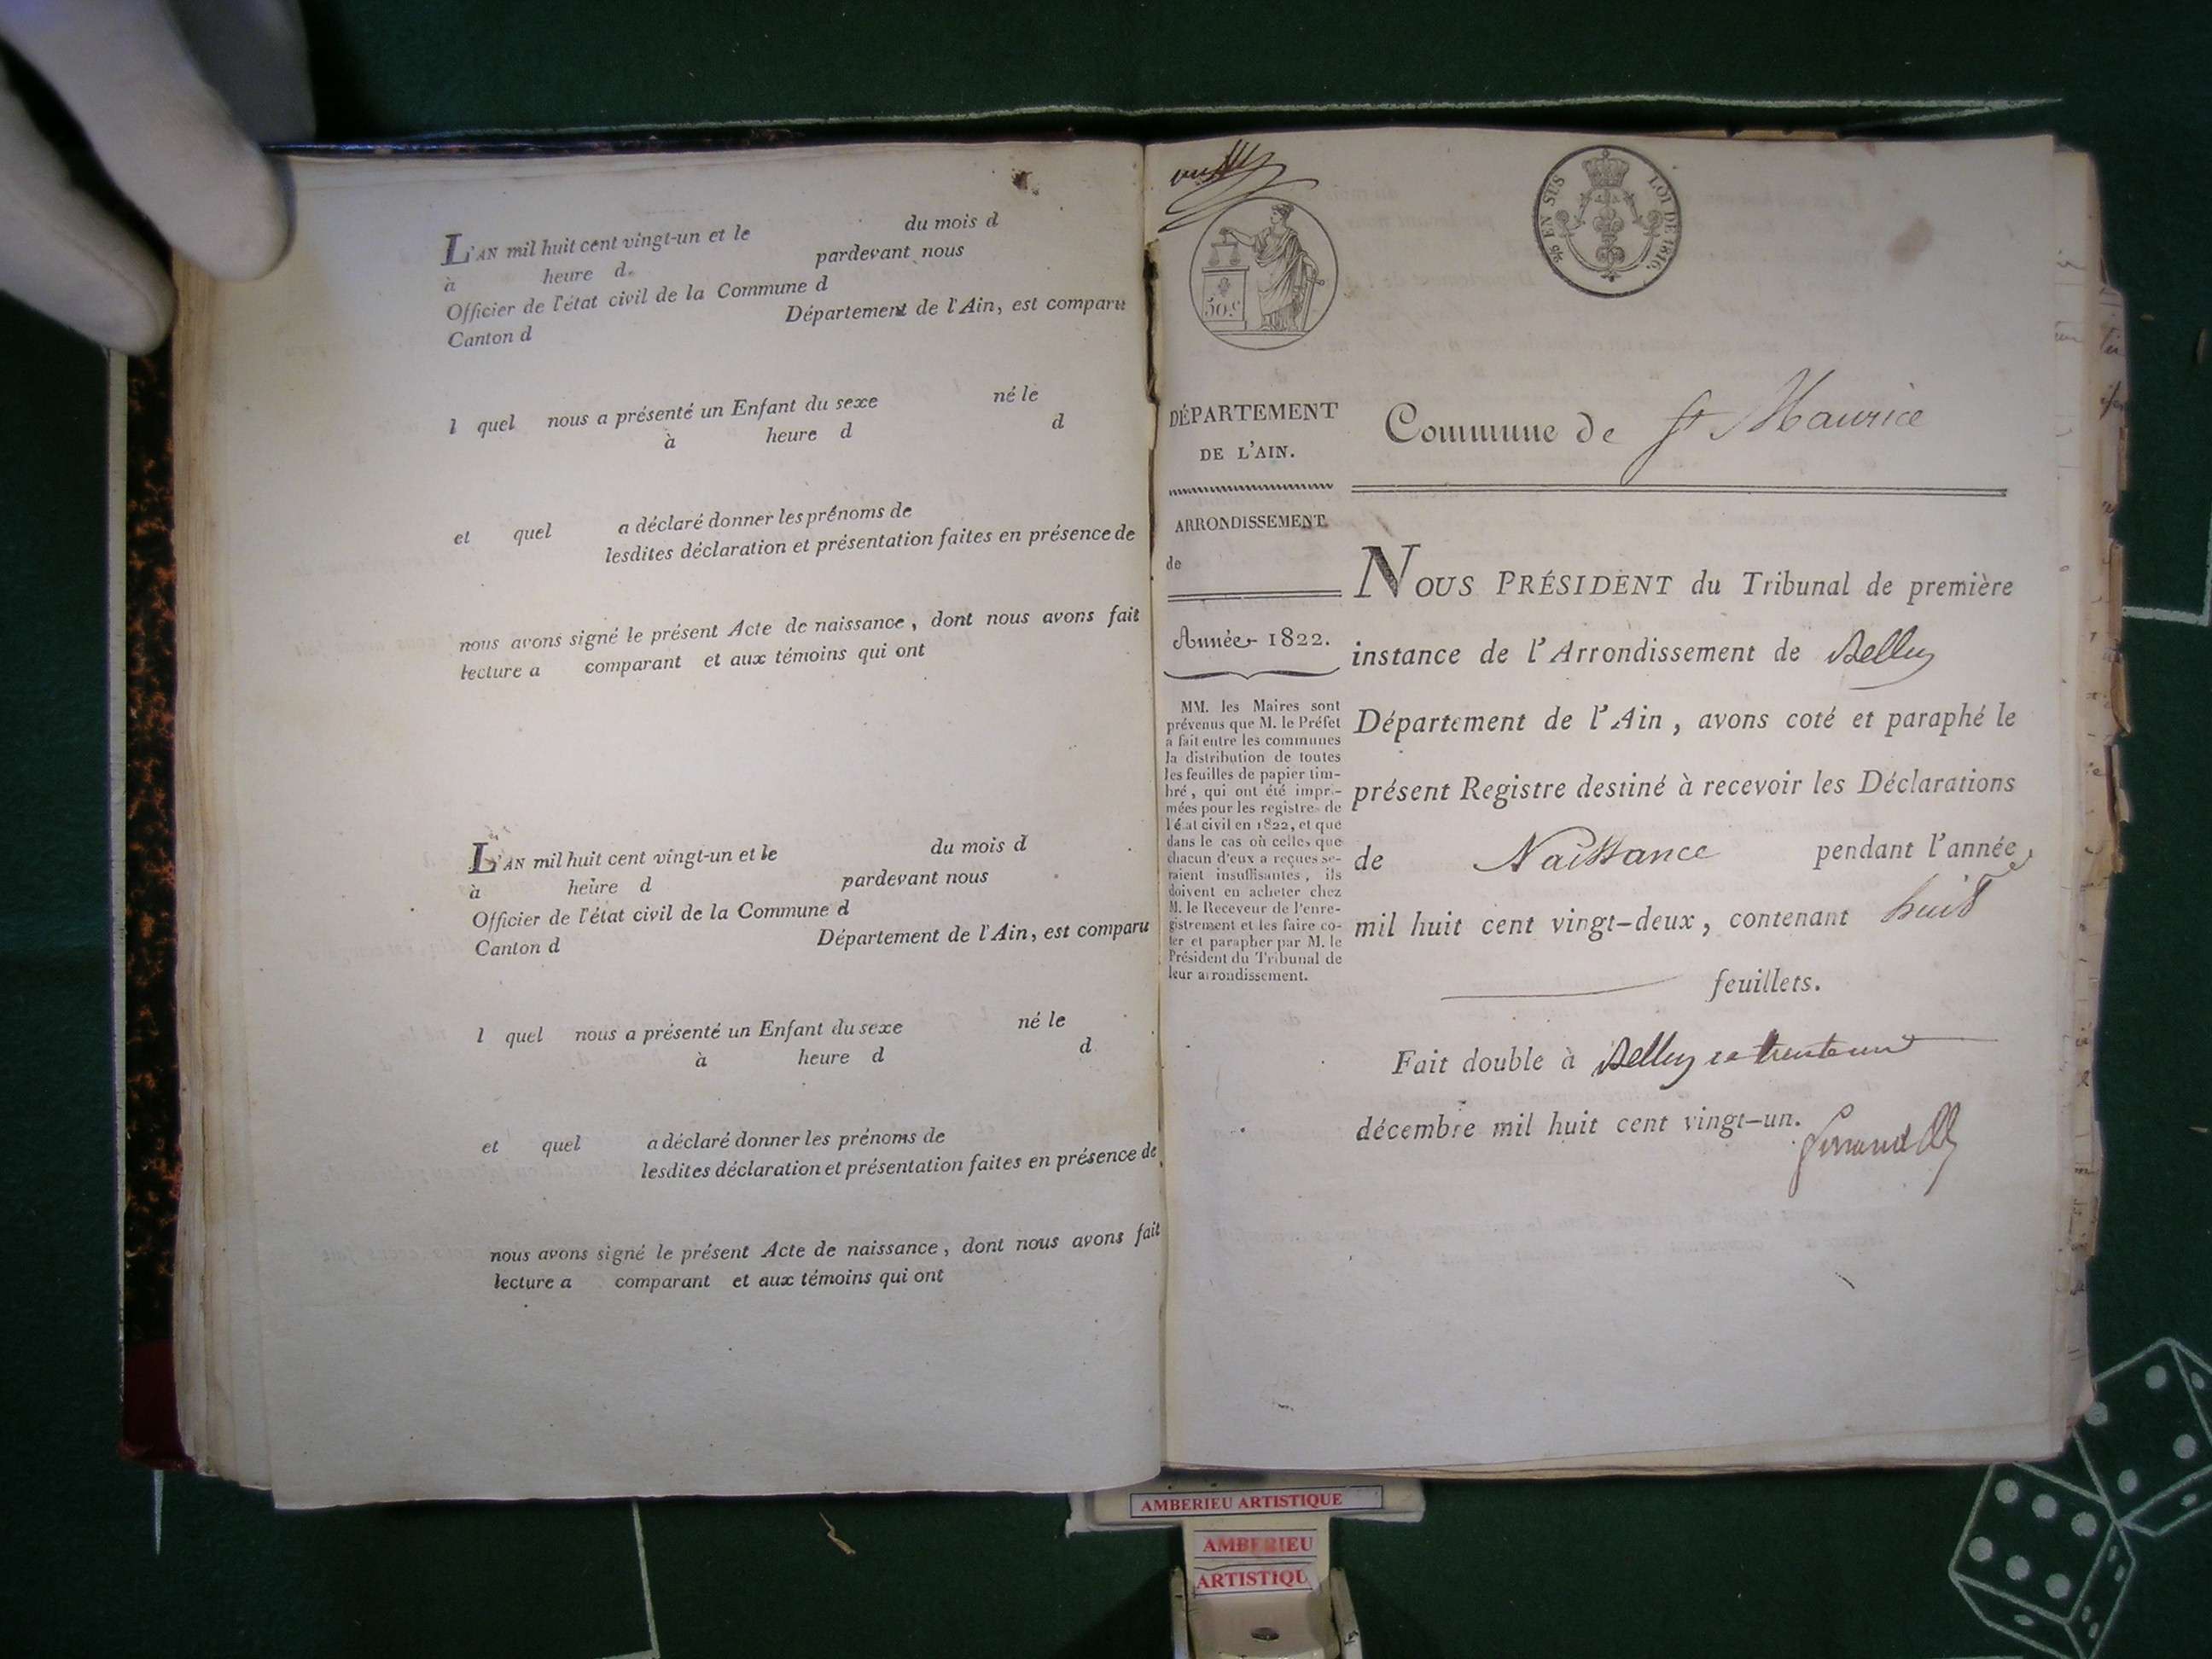 L'AN mil huit cent vingt-un et le du mois d
à heure d pardevant nous
Officier de l'état civil de la Commune d
Canton d Département de l'Ain, est comparu
l quel nous a présenté un Enfant du sexe né le
à heure d d
et quel a déclaré donner les prénoms de
lesdites déclaration et présentation faites en présence de
nous avons signé le présent Acte de naissance, dont nous avons fait
lecture a comparant et aux témoins qui ont
L'AN mil huit cent vingt-un et le du mois d
à heure d pardevant nous
Officier de l'état civil de la Commune d
Canton d Département de l'Ain, est comparu
l quel nous a présenté un Enfant du sexe né le
à heure d d
et quel a déclaré donner les prénoms de
lesdites déclaration et présentation faites en présence de
nous avons signé le présent Acte de naissance, dont nous avons fait
lecture a comparant et aux témoins qui ont
50.c
EN SUS LOI DE 1816.
DÉPARTEMENT
DE L'AIN.
ARRONDISSEMENT
de
Année 1822.
MM. les Maires sont
prévenus que M. le Préfet
a fait entre les communes
la distribution de toutes
les feuilles de papier tim-
bré, qui ont été impri-
mées pour les registres de
l'état civil en 1822, et que
dans le cas où celles que
chacun d'eux a reçues se-
raient insuffisantes, ils
doivent en acheter chez
M. le Receveur de l'enre-
gistrement et les faire co-
ter et parapher par M. le
Président du Tribunal de
leur arrondissement.
Commune de St Maurice
NOUS PRÉSIDENT du Tribunal de première
instance de l'Arrondissement de Belley
Département de l'Ain, avons coté et paraphé le
présent Registre destiné à recevoir les Déclarations
de Naissance pendant l'année
mil huit cent vingt-deux, contenant huit
feuillets.
Fait double à Belley le trente un
décembre mil huit cent vingt-un.
AMBERIEU ARTISTIQUE
AMBERIEU
ARTISTIQU